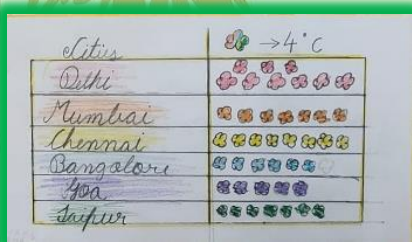 Cities
→4°C
Delhi
Mumbai
Chennai
Bangolore
Goa
Jaipur